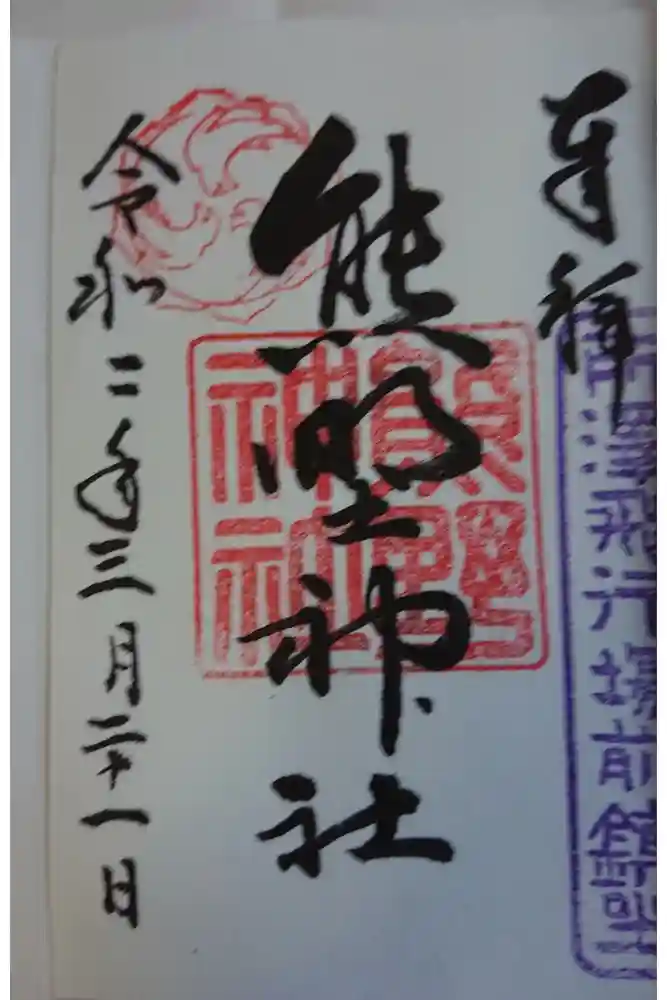 奉拝
所澤飛行場前鎮座
熊野神社
熊野
神社
令和二年三月二十一日